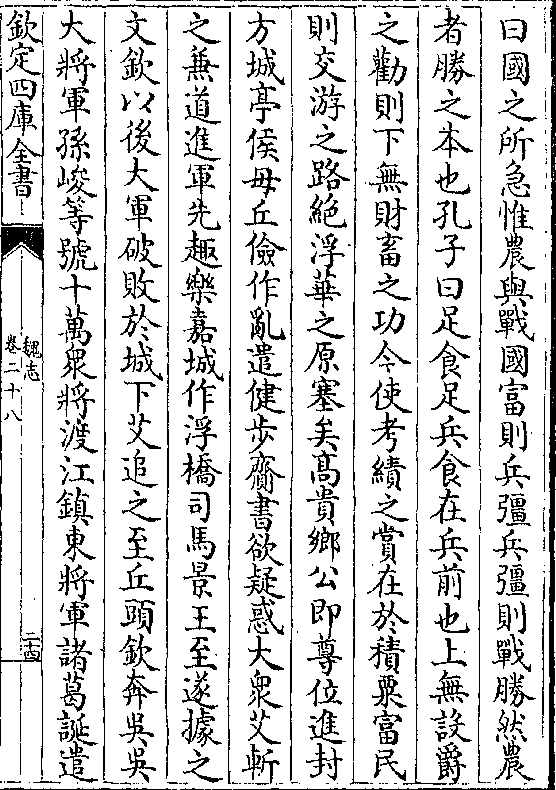 曰國之所急惟農與戰國富則兵彊兵彊則戰勝然農
者勝之本也孔子曰足食足兵食在兵前也上無設爵
之勸則下無財畜之功今使考績之賞在於積粟富民
則交游之路絶浮華之原塞矣髙貴鄉公即尊位進封
方城亭侯毋丘儉作亂遣健步齎書欲疑惑大衆艾斬
之兼道進軍先趣樂嘉城作浮橋司馬景王至遂據之
文欽以後大軍破敗於城下艾追之至丘頭欽奔吳吳
大將軍孫峻等號十萬衆將渡江鎮東將軍諸葛誕遣
欽定四庫全書
魏志
卷二十八
二四